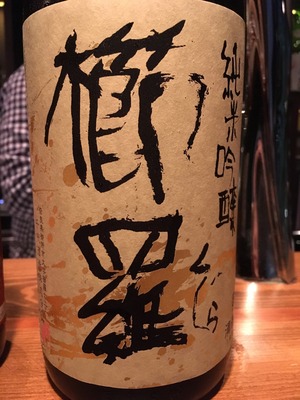 純米吟醸
櫛羅
くじら